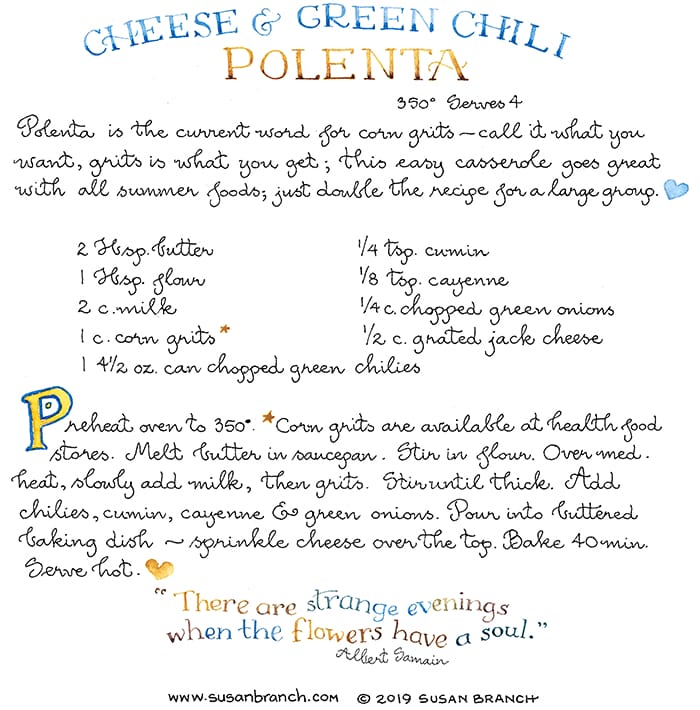 CHEESE & GREEN CHILI
POLENTA
350° Serves 4
Polenta is the current word for corn grits – call it what you
want, grits is what you get; this easy casserole goes great
with all summer foods; just double the recipe for a large group.
2 Tbsp. butter
1 Tbsp. flour
2 c. milk
1 c. corn grits*
1 4½ oz. can chopped green chilies
1/4 tsp. cumin
1/8 tsp. cayenne
1/4 c. chopped green onions
1/2 c. grated jack cheese
Preheat oven to 350°. *Corn grits are available at health food
stores. Melt butter in saucepan. Stir in flour. Over med.
heat, slowly add milk, then grits. Stir until thick. Add
chilies, cumin, cayenne & green onions. Pour into buttered
baking dish ~ sprinkle cheese over the top. Bake 40 min.
Serve hot.
"There are strange evenings
when the flowers have a soul."
Albert Samain
www.susanbranch.com © 2019 SUSAN BRANCH